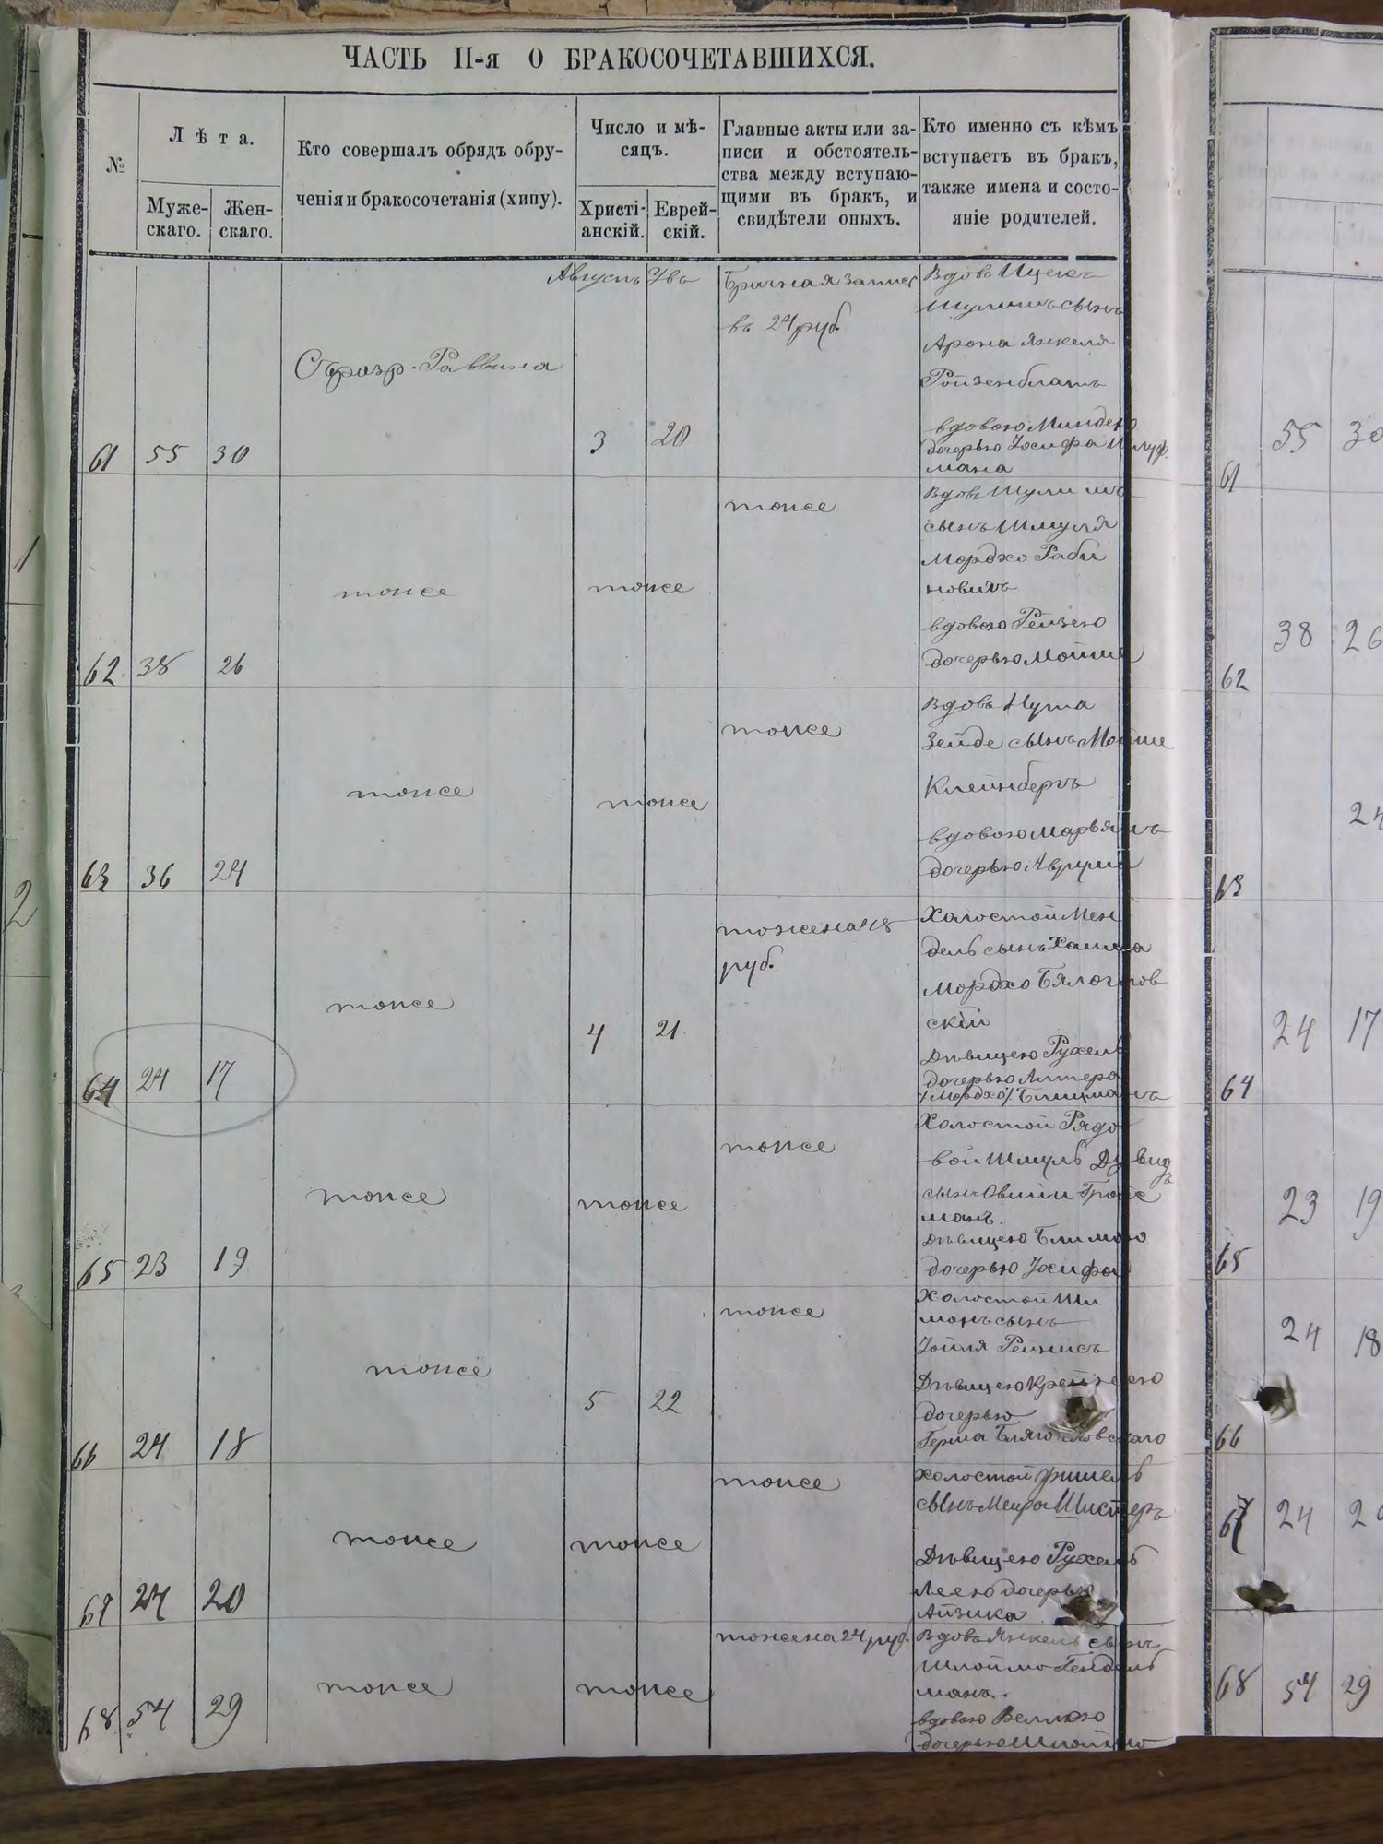 ЧАСТЬ II-я О БРАКОСОЧЕТАВШИХСЯ.
№
Лѣта.
Муже-
скаго.
Жен-
скаго.
Кто совершалъ обрядъ обру-
ченія и бракосочетанія (хипу).
Число и мѣ-
сяцъ.
Христі-
анскій.
Еврей-
скій.
Главные акты или за-
писи и обстоятель-
ства между вступаю-
щими въ бракъ, и
свидѣтели оныхъ.
Кто именно съ кѣмъ
вступаетъ въ бракъ,
также имена и состо-
яніе родителей.
61 55 30
Раввина
Августъ
3 20
Брачная запись
въ 24 руб.
Вдовъ Ицекъ
сынъ
Арона Янкеля
Ройзенблатъ
вдовою Миндею
дочерью Іосифа
мана
62 38 26
тоже
тоже
тоже
Вдовъ Шулимъ
сынъ Шмуля
Мордко Раби
новичъ
вдовою Рейзею
дочерью Мойше
63 36 24
тоже
тоже
тоже
Вдовъ Нута
Зейде сынъ Мойше
Клейнбергъ
вдовою Марьямъ
дочерью Аврума
64 24 17
тоже
4 21
тоже на 48
руб.
Холостой Мен
дель сынъ Хаима
Мордко
скій
Дѣвицею Рухель
дочерью Алтера
/Мордко/
65 23 19
тоже
тоже
тоже
Холостой Рядо
вой Шмуль Дувидъ
сынъ Овшии Гройс
манъ.
Дѣвицею Блимою
дочерью Іосифа
66 24 18
тоже
5 22
тоже
Холостой Ши
монъ сынъ
Іойля
Дѣвицею Крейнею
дочерью
Герша
67 24 20
тоже
тоже
тоже
Холостой Фишель
сынъ Меира Шистеръ
Дѣвицею Рухель
Леею дочерью
Айзика
68 54 29
тоже
тоже
тоже на 24 руб.
Вдовъ Янкель сынъ
Шлоймо Гендель
манъ.
вдовою Велею
дочерью Шлоймо
1
2
61 55 30
62 38 26
63 24
64 24 17
65 23 19
66 24 18
67 24
68 54 29